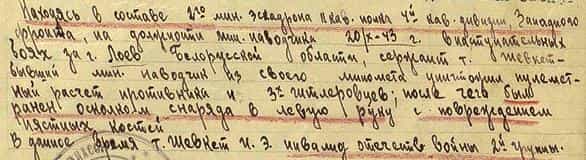 Находясь в составе 2го мин. эскадрона кав. полка 4й кав. дивизии, Западного
фронта, на должности мин. наводчик 20/X-43 г. в наступательных
боях за г. Лоев Белорусской области, сержант т. Шевкет-
бывший мин. наводчик из своего миномета уничтожил пулемет-
ный расчет противника и 3х гитлеровцев; после чего был
ранен осколком снаряда в левую руку с повреждением
пястных костей
В данное время т. Шевкет И. Э. инвалид отечеств войны 2й группы.